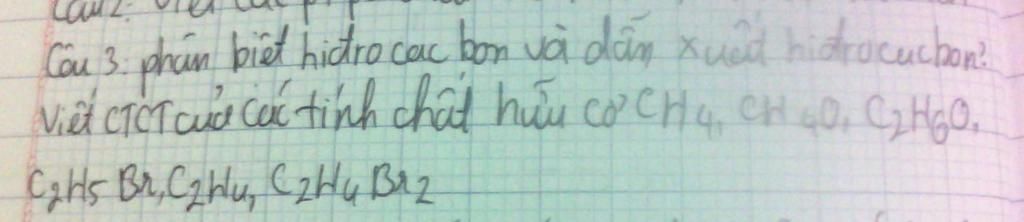 Câu 3: phân biệt hidro cac bon và dẫn xuất hidrocacbon?
Viết CTCT của các tính chất hữu cơ CH4, CH4O, C2H6O,
C2H5 Br, C2H4, C2H4 Br2